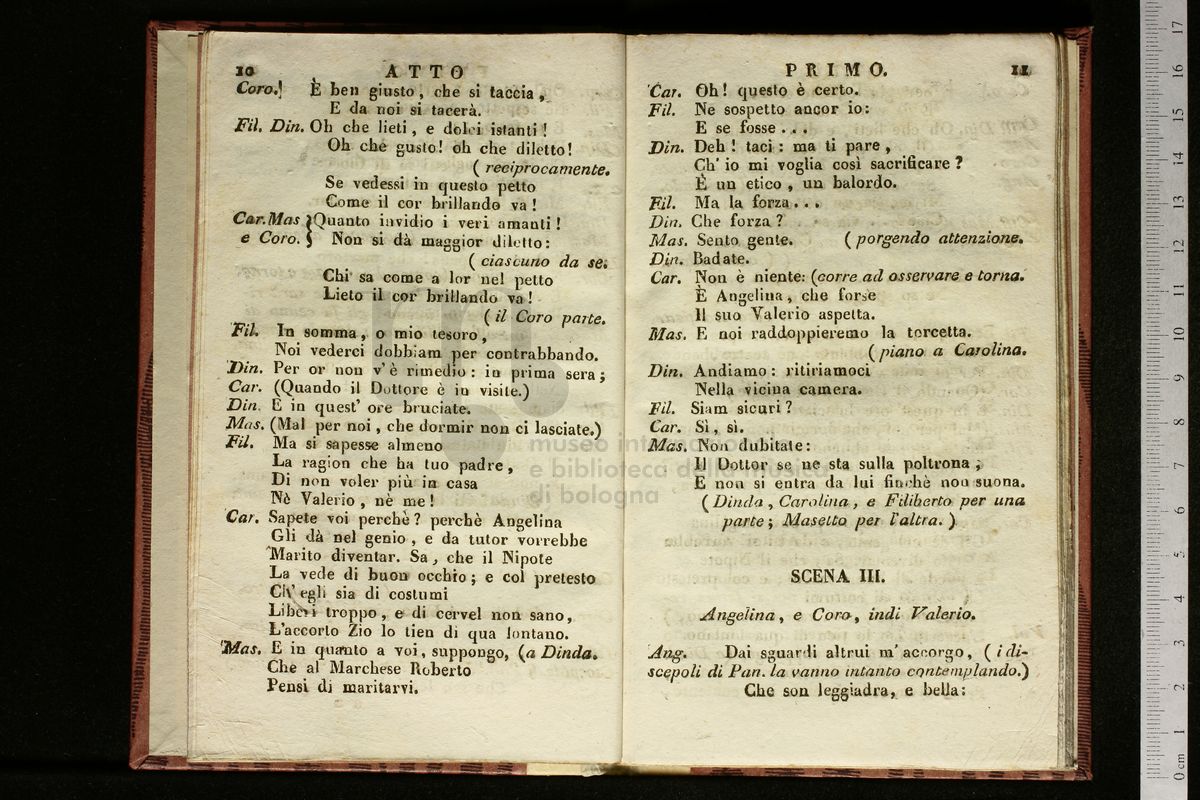 10 ATTO
Coro. È ben giusto, che si taccia,
E da noi si tacerà.
Fil. Din. Oh che lieti, e dolci istanti!
Oh che gusto! oh che diletto!
( reciprocamente.
Se vedessi in questo petto
Come il cor brillando va!
Car. Mas } Quanto invidio i veri amanti!
e Coro. } Non si dà maggior diletto:
( ciascuno da se.
Chi sa come a lor nel petto
Lieto il cor brillando va!
( il Coro parte.
Fil. In somma, o mio tesoro,
Noi vederci dobbiam per contrabbando.
Din. Per or non v'è rimedio: in prima sera;
Car. (Quando il Dottore è in visite.)
Din. E in quest' ore bruciate.
Mas. (Mal per noi, che dormir non ci lasciate.)
Fil. Ma si sapesse almeno
La ragion che ha tuo padre,
Di non voler più in casa
Nè Valerio, nè me!
Car. Sapete voi perchè? perchè Angelina
Gli dà nel genio, e da tutor vorrebbe
Marito diventar. Sa, che il Nipote
La vede di buon occhio; e col pretesto
Ch' egli sia di costumi
Liberi troppo, e di cervel non sano,
L'accorto Zio lo tien di qua lontano.
Mas. E in quanto a voi, suppongo, (a Dinda.
Che al Marchese Roberto
Pensi di maritarvi.
PRIMO. 11
Car. Oh! questo è certo.
Fil. Ne sospetto ancor io:
E se fosse . . .
Din. Deh! taci: ma ti pare,
Ch' io mi voglia così sacrificare?
È un etico, un balordo.
Fil. Ma la forza . . .
Din. Che forza?
Mas. Sento gente. ( porgendo attenzione.
Din. Badate.
Car. Non è niente: (corre ad osservare e torna.
È Angelina, che forse
Il suo Valerio aspetta.
Mas. E noi raddoppieremo la torcetta.
( piano a Carolina.
Din. Andiamo: ritiriamoci
Nella vicina camera.
Fil. Siam sicuri?
Car. Sì, sì.
Mas. Non dubitate:
Il Dottor se ne sta sulla poltrona;
E non si entra da lui finchè non suona.
( Dinda, Carolina, e Filiberto per una
parte; Masetto per l'altra. )
SCENA III.
Angelina, e Coro, indi Valerio.
Ang. Dai sguardi altrui m'accorgo, ( i di-
scepoli di Pan. la vanno intanto contemplando.)
Che son leggiadra, e bella:
museo internazionale
e biblioteca della musica
di bologna
0 cm 1 2 3 4 5 6 7 8 9 10 11 12 13 14 15 16 17